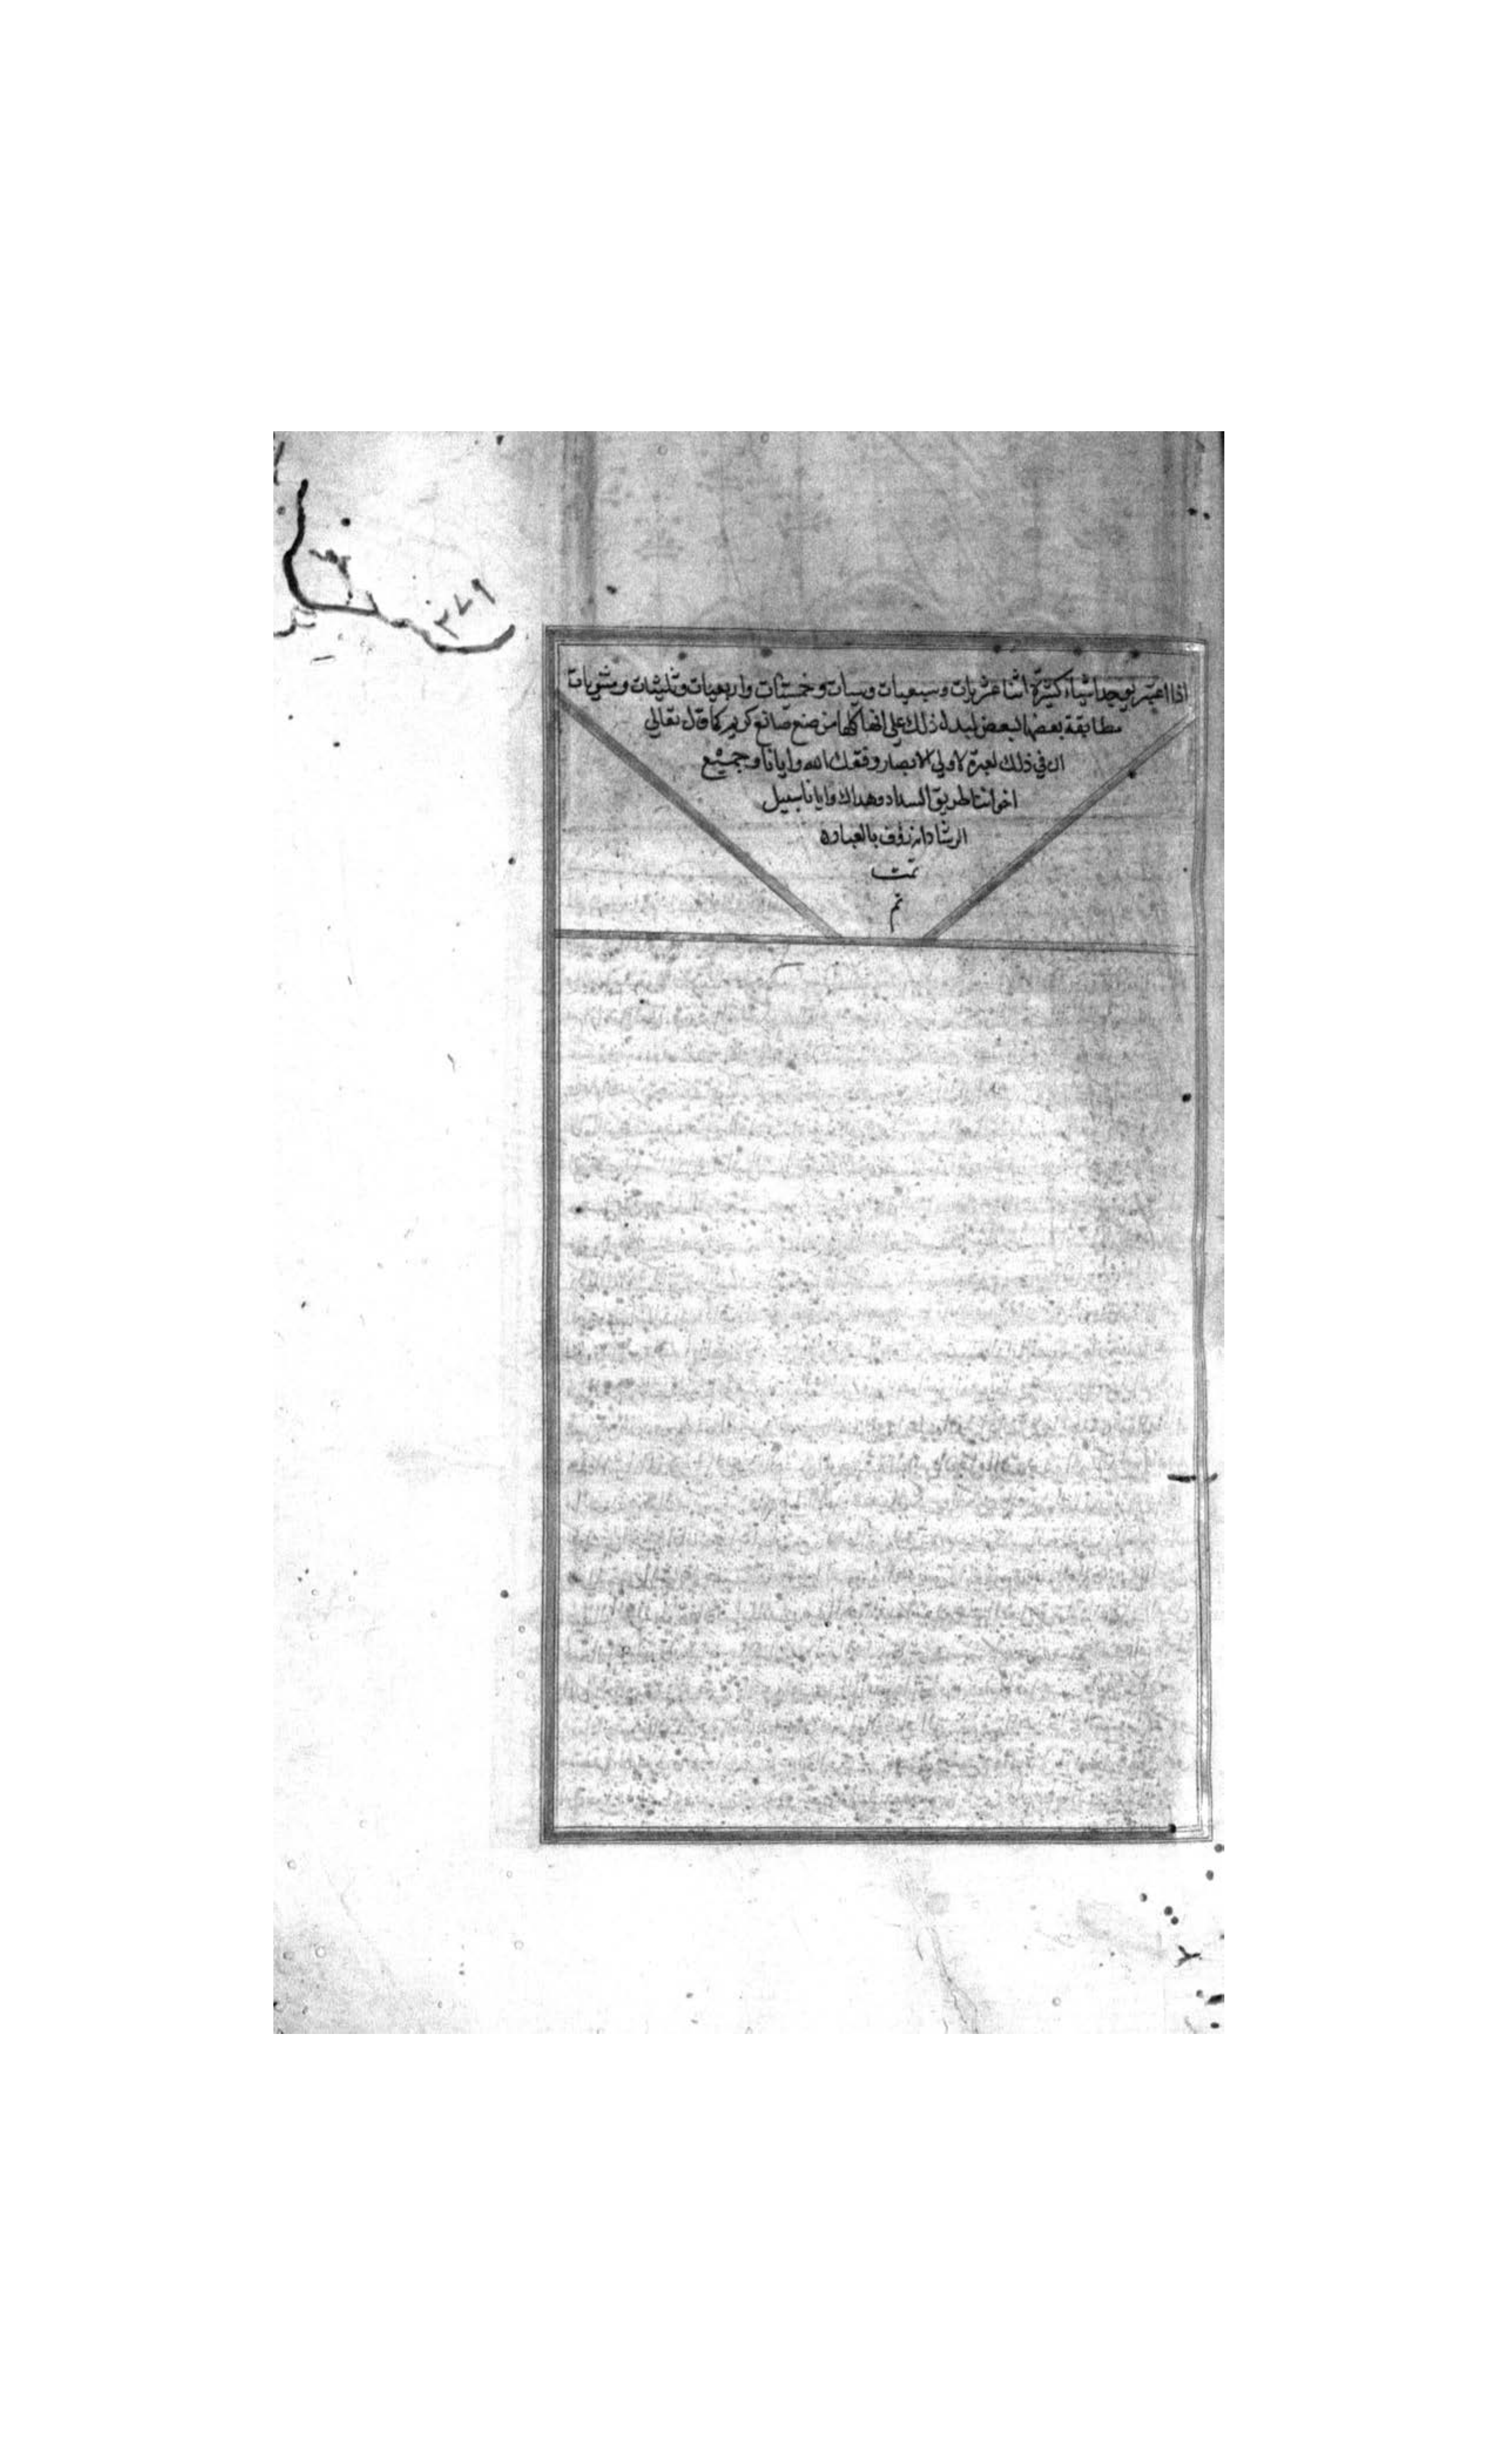 اذا اعتبر يوجد اشياء كثيرة اثنا عشريات وسبعيات وستات وخمسيات واربعيات وثلثيات ومثنويات
مطابقة بعضها لبعض ليدل ذلك على انها كلها من صنع صانع كريم كما قال تعالى
ان في ذلك لعبرة لاولي الابصار وفقك الله وايانا وجميع
اخواننا طريق السداد وهداك وايانا سبيل
الرشاد انه رؤف بالعباد
تمت
تم